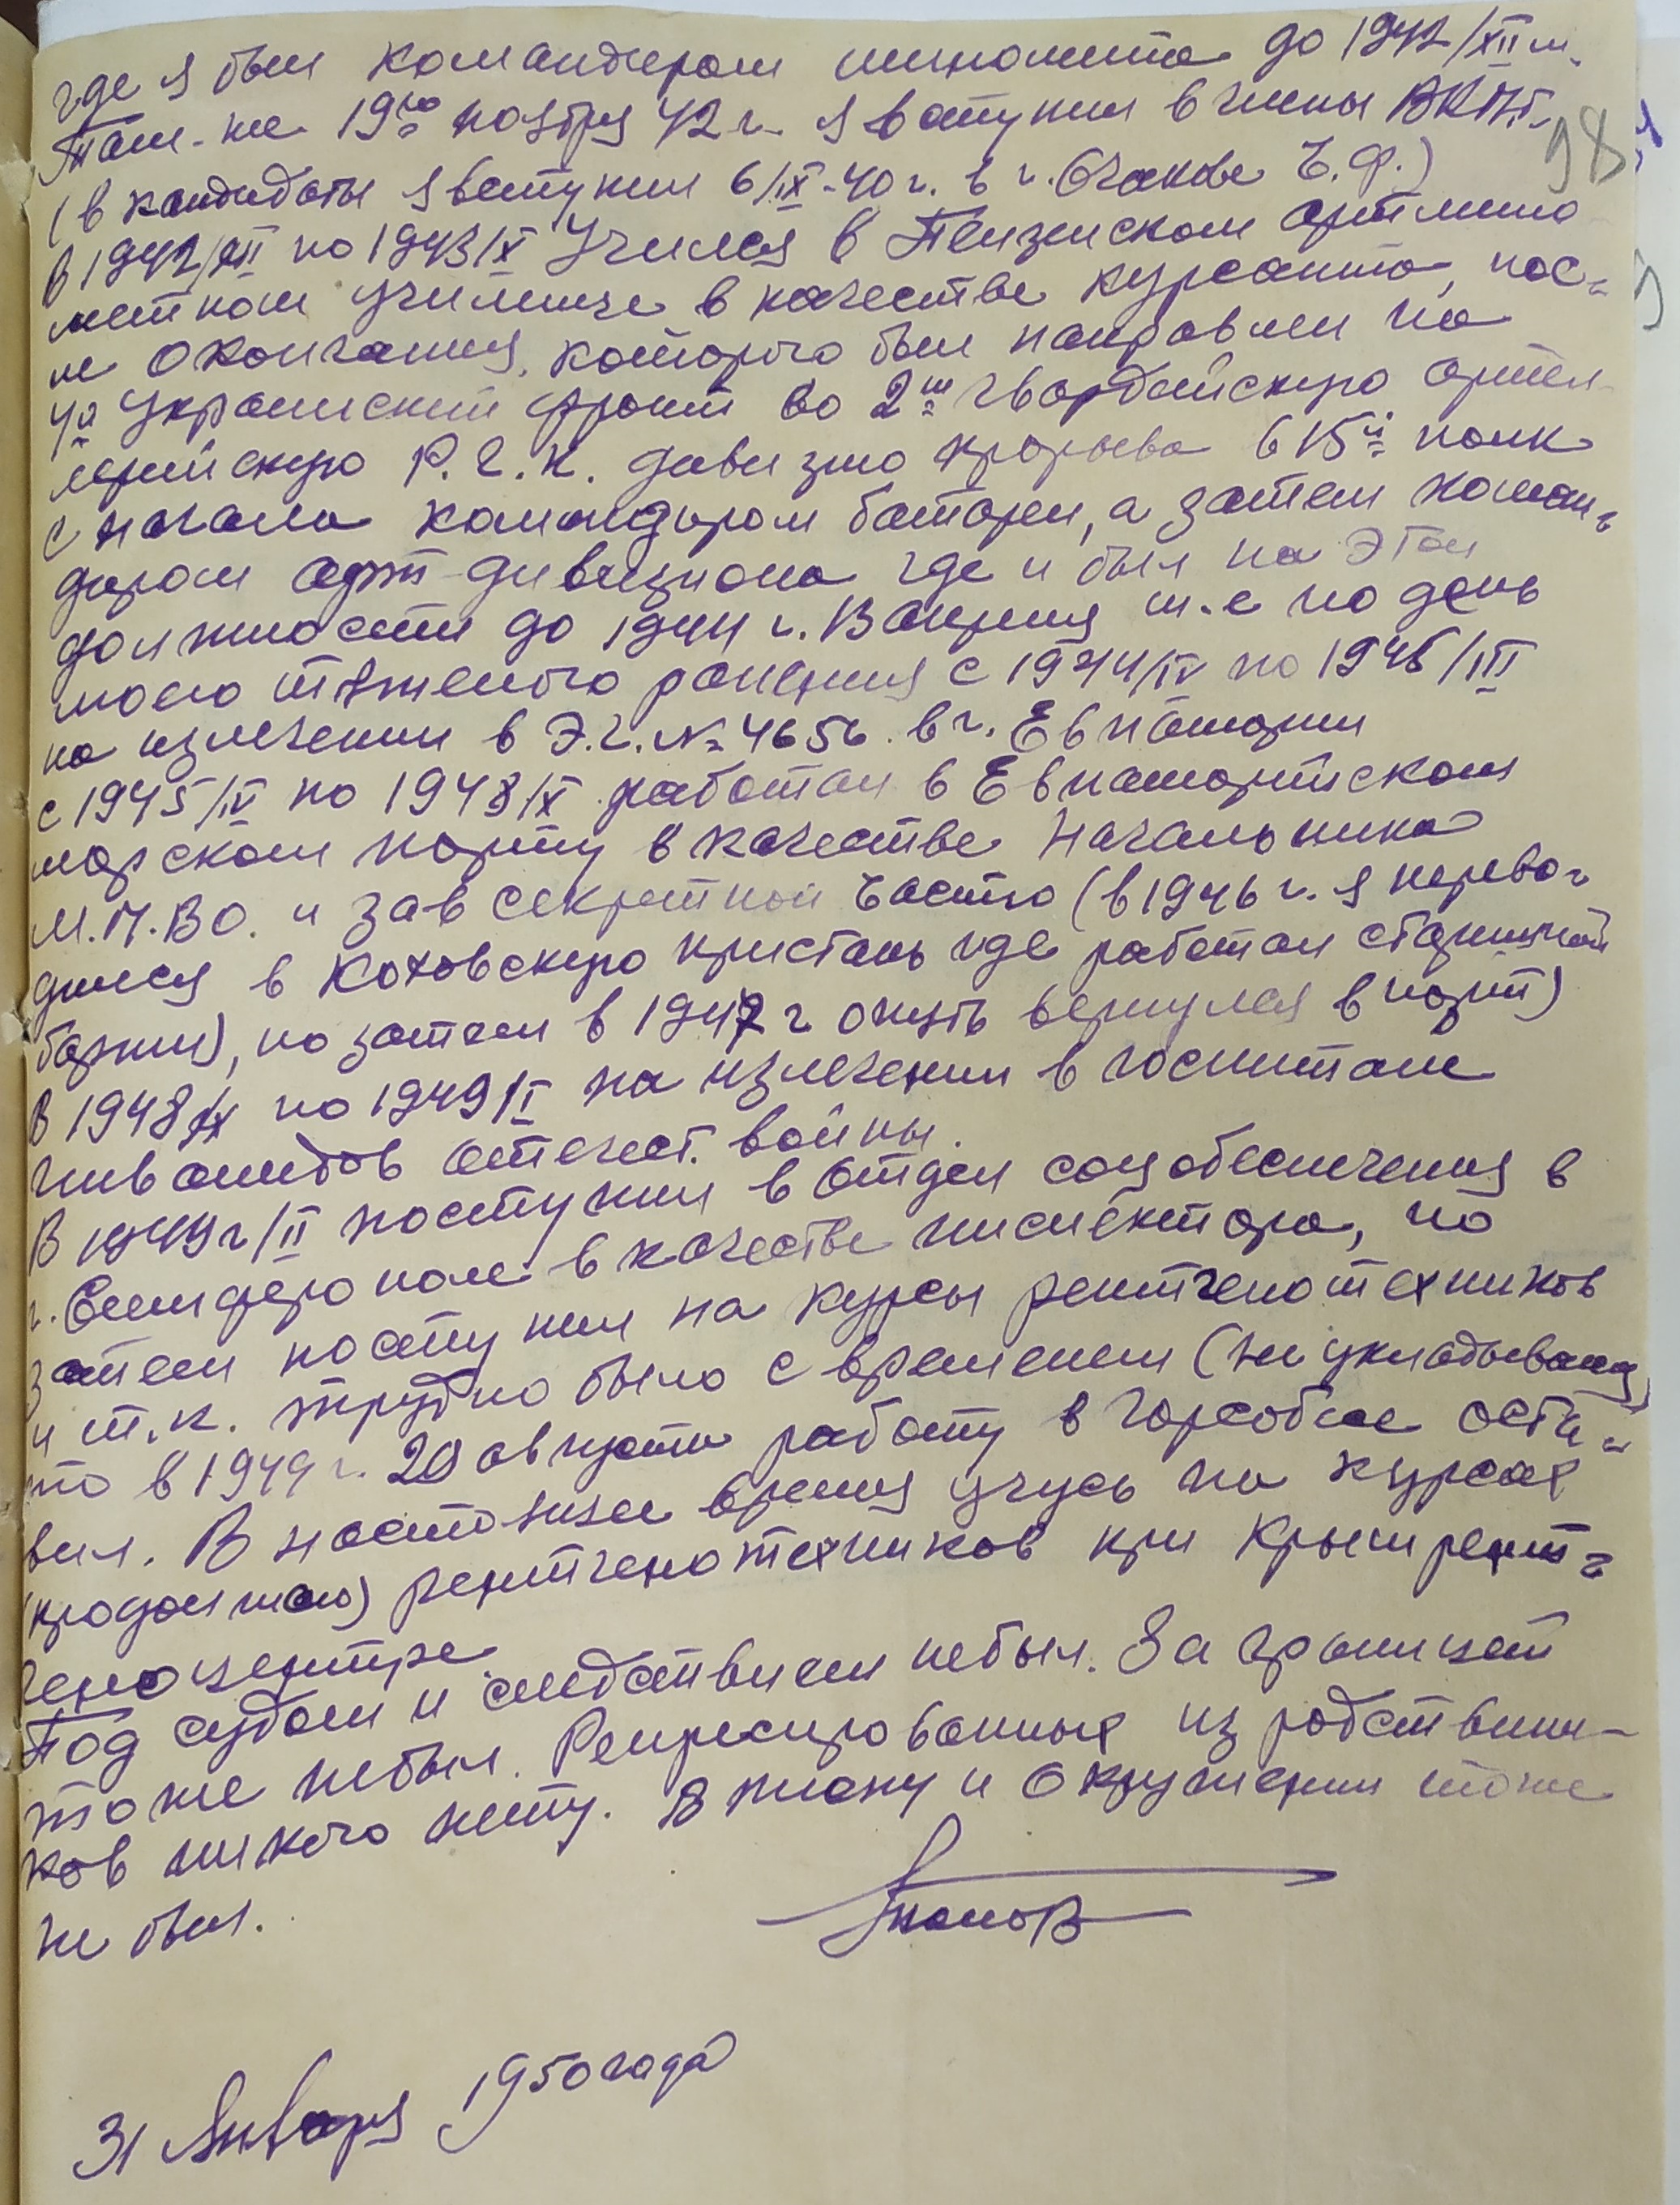 где я был командиром миномета до 1942/XII м.
Там-же 19го ноября 42 г. я вступил в члены ВКПб
98
(в кандидаты я вступил 6/IX-40 г. в г. Очакове Ч.Ф.)
В 1942/XII по 1943/X Учился в Пензенском артмино
метном училище в качестве курсанта, пос-
ле окончания, которого был направлен на
4й Украинский фронт во 2ю гвардейскую артил-
лерийскую Р.Г.К. дивизию прорыва в 15й полк
с начала командиром батареи, а затем коман-
диром арт-дивизиона где и был на этой
должности до 1944 г. 13 апреля т.е по день
моего тяжелого ранения с 1944/IV по 1945/III
на излечении в Э.Г. № 4656 в г. Евпатории
с 1945/IV по 1948/X работал в Евпаторийском
морском порту в качестве начальника
М.П.В.О. и зав секретной частью (в 1946 г. я перево-
дился в Каховскую пристань где работал старшиной
баржи), но затем в 1947 г опять вернулся в порт)
В 1948/X по 1949/II на излечении в госпитале
инвалидов отечест. войны.
В 1949г/II поступил в отдел соцобеспечения в
г. Симферополе в качестве инспектора, но
затем поступил на курсы рентгенотехников
и т.к. трудно было с временем (не укладывался)
то в 1949 г. 20 августа работу в горсобесе оста-
вил. В настоящее время учусь на курсах
(продолжаю) рентгенотехников при Крымрент-
геноцентре
Под судом и следствием небыл. За границей
тоже небыл. Репресированных из родственни-
ков никого нету. В плену и окружении тоже
не был.
31 Января 1950 года